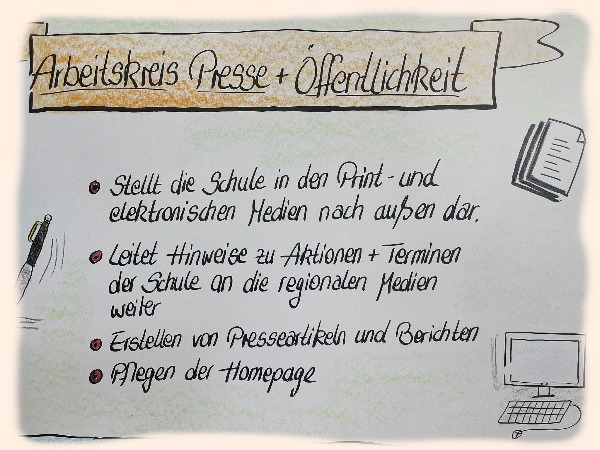 Arbeitskreis Presse + Öffentlichkeit
Stellt die Schule in den Print- und
elektronischen Medien nach außen dar.
Leitet Hinweise zu Aktionen + Terminen
der Schule an die regionalen Medien
weiter
Erstellen von Presseartikeln und Berichten
Pflegen der Homepage